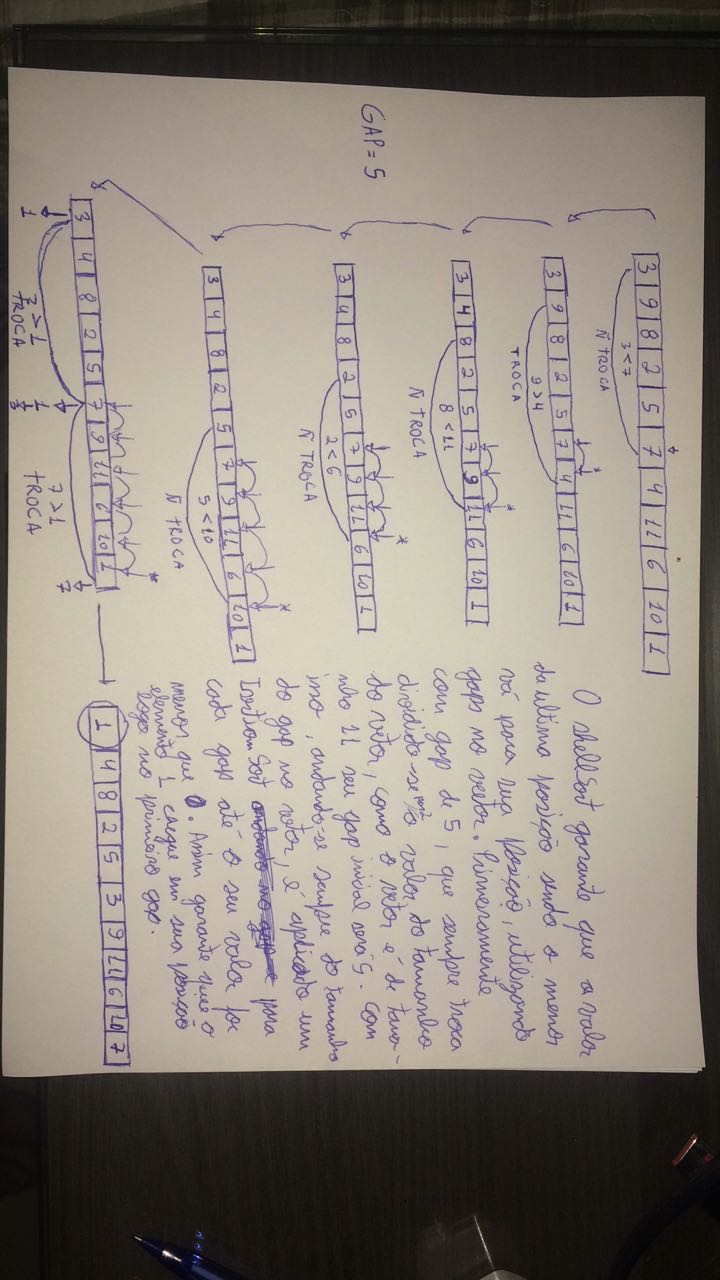 GAP = 5
3 9 8 2 5 7 4 11 6 10 1
3 < 7
Ñ TROCA
3 9 8 2 5 7 4 11 6 10 1
9 > 4
TROCA
3 4 8 2 5 7 9 11 6 10 1
8 < 11
Ñ TROCA
3 4 8 2 5 7 9 11 6 10 1
2 < 6
Ñ TROCA
3 4 8 2 5 7 9 11 6 10 1
5 < 10
Ñ TROCA
3 4 8 2 5 7 9 11 6 10 1
1
3 > 1
TROCA
1
3
7 > 1
TROCA
7
1 4 8 2 5 3 9 11 6 10 7
O shellSort garante que o valor
da ultima posição sendo o menor
vá para sua posição, utilizando
gaps no vetor. Primeiramente
com gap de 5, que sempre troca
dividido-se o valor do tamanho
do vetor, como o vetor é de tama-
nho 11 seu gap inicial será 5. Com
isso, andando-se sempre do tamanho
do gap no vetor, é aplicado um
Insertion Sort para
cada gap até o seu valor for
menor que 0. Assim garante que o
elemento 1 chegue em sua posição
logo no primeiro gap.